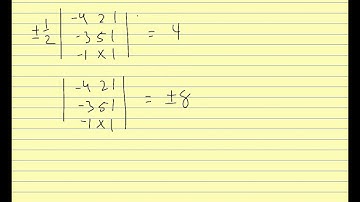 ±1/2 | -4 2 1 |
| -3 5 1 | = 4
| -1 x 1 |
| -4 2 1 |
| -3 5 1 | = ±8
| -1 x 1 |